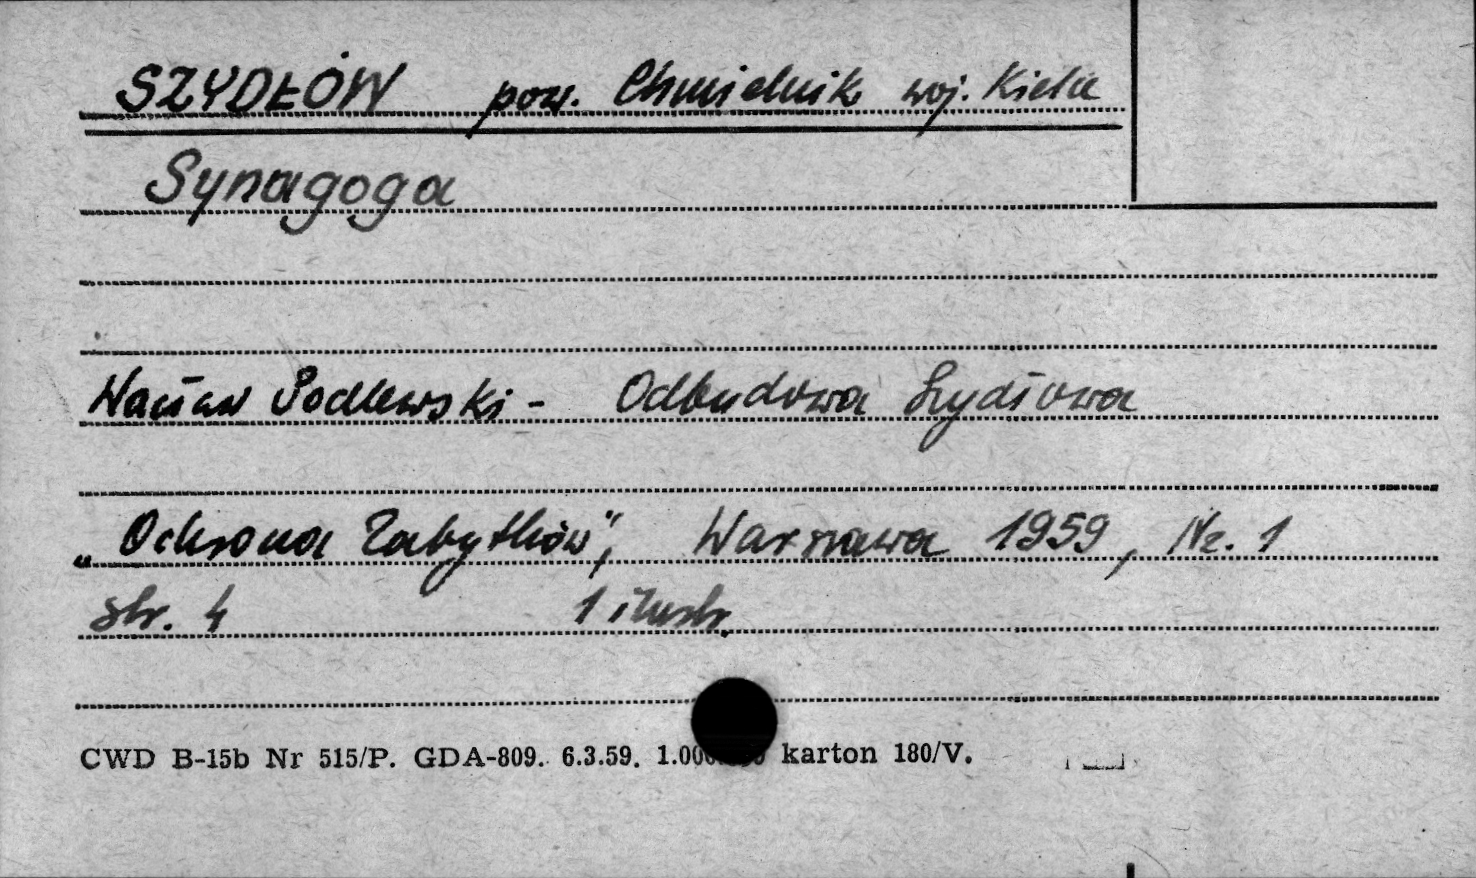 SZYDŁÓW pow. Chmielnik woj. Kielce
Synagoga
Wacław Podlewski - Odbudowa Szydłowa
„Ochrona Zabytków", Warszawa 1959, Nr. 1
str. 4 1 ilustr.
CWD B-15b Nr 515/P. GDA-809. 6.3.59. karton 180/V.